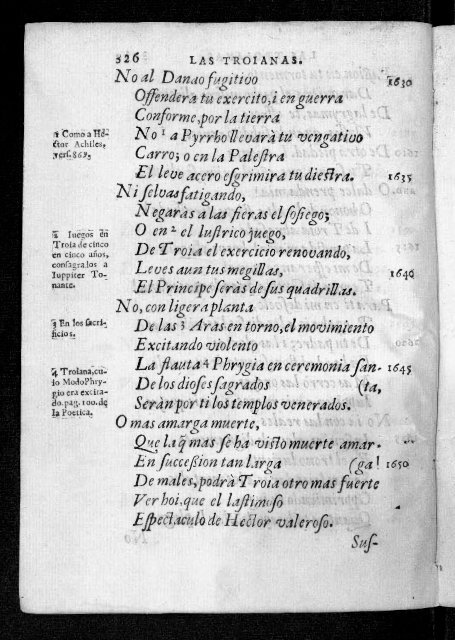 326 LAS TROIANAS.
No al Danao fugitivo 1630
Offendera tu exercito, i en guerra
Conforme, por la tierra
No ¹ a Pyrrho llevarà tu vengativo
Carro; o en la Palestra
El leve acero esgrimira tu diestra. 1635
Ni selvas fatigando,
Negaràs a las fieras el sosiego;
O en ² el lustrico juego,
De Troia el exercicio renovando,
Leves aun tus megillas, 1640
El Principe seràs de sus quadrillas.
No, con ligera planta
De las ³ Aras en torno, el movimiento
Excitando violento
La flauta ⁴ Phrygia en ceremonia san- 1645
De los dioses sagrados (ta,
Seràn por ti los templos venerados.
O mas amarga muerte,
Que la q̃ mas se ha visto muerte amar-
En succession tan larga (ga! 1650
De males, podrà Troia otro mas fuerte
Ver hoi, que el lastimoso
Espectaculo de Hector valeroso.
Sus-
1 Como a He-
ctor Achiles,
vers. 863.
2 Iuegos en
Troia de cinco
en cinco años,
consagralos a
Iuppiter To-
nante.
3 En los sacri-
ficios.
4 Troiana, cu-
io Modo Phry-
gio era excita-
do. pag. 100. de
la Poetica.